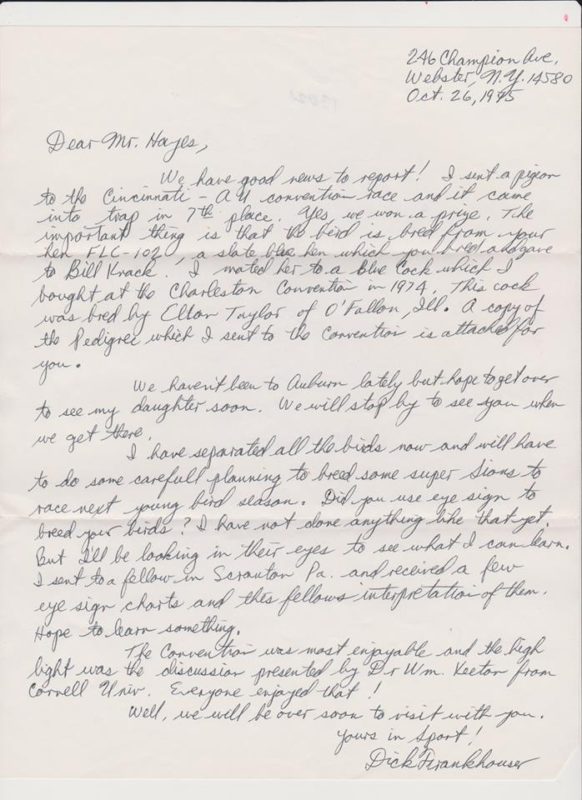 246 Champion Ave.
Webster, N.Y. 14580
Oct. 26, 1975
Dear Mr. Hayes,
We have good news to report! I sent a pigeon
to the Cincinnati - AU convention race and it came
into trap in 7th place. Yes, we won a prize. The
important thing is that the bird is bred from your
hen FLC-102, a slate blue hen which you bred and gave
to Bill Krack. I mated her to a Blue Cock which I
bought at the Charleston Convention in 1974. This cock
was bred by Elton Taylor of O'Fallon, Ill. A copy of
the Pedigree which I sent to the Convention is attached for
you.
We haven't been to Auburn lately but hope to get over
to see my daughter soon. We will stop by to see you when
we get there.
I have separated all the birds now and will have
to do some carefull planning to breed some super Sions to
race next young bird season. Did you use eye sign to
breed your birds? I have not done anything like that yet.
But I'll be looking in their eyes to see what I can learn.
I sent to a fellow in Scranton Pa. and received a few
eye sign charts and this fellows interpretation of them.
Hope to learn something.
The Convention was most enjoyable and the high
light was the discussion presented by Dr Wm. Keeton from
Cornell Univ. Everyone enjoyed that!
Well, we will be over soon to visit with you.
Yours in Sport!
Dick Frankhouser